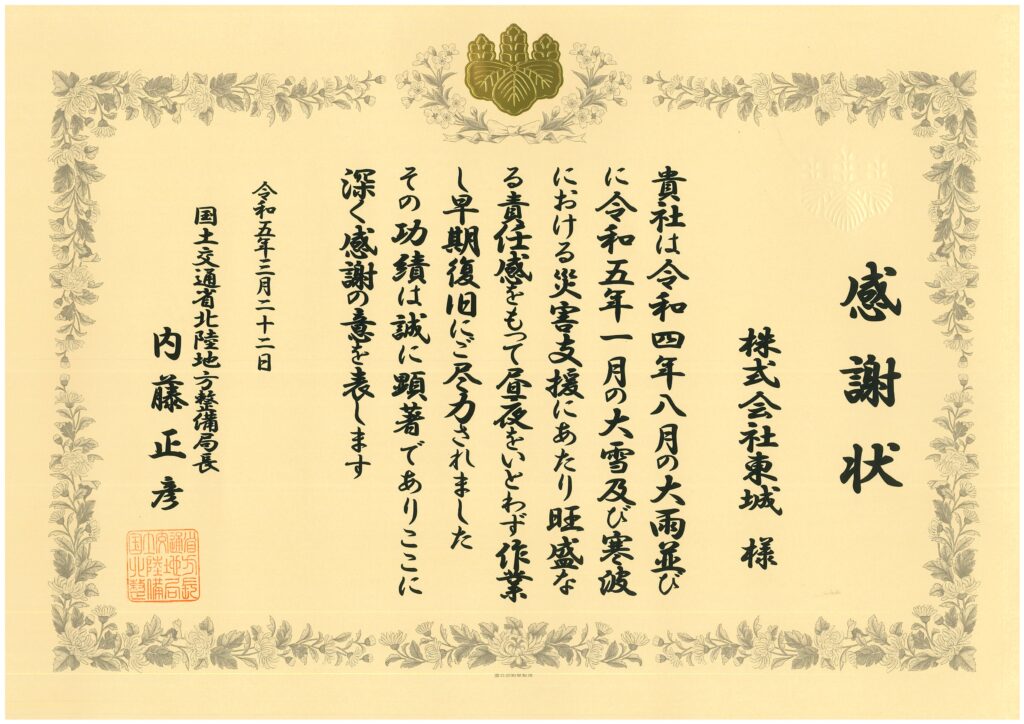 感謝状
株式会社東城 様
貴社は令和四年八月の大雨並び
に令和五年一月の大雪及び寒波
における災害支援にあたり旺盛な
る責任感をもって昼夜をいとわず作業
し早期復旧にご尽力されました
その功績は誠に顕著でありここに
深く感謝の意を表します
令和五年三月二十二日
国土交通省北陸地方整備局長
内藤正彦